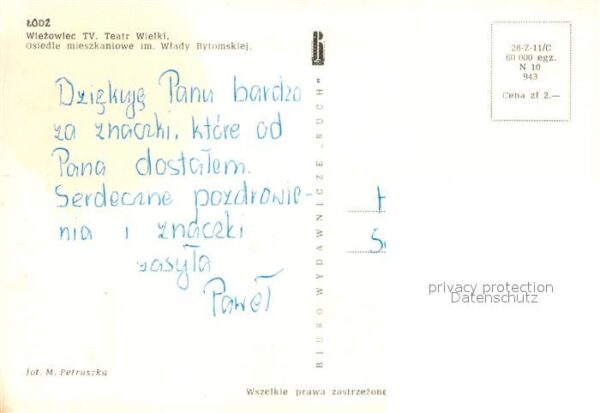 ŁÓDŹ
Wieżowiec TV. Teatr Wielki.
Osiedle mieszkaniowe im. Włady Bytomskiej.
28-Z-11/C
60 000 egz.
N 10
943
Cena zł 2.—
Dziękuję Panu bardzo
za znaczki, które od
Pana dostałem.
Serdeczne pozdrowie-
nia i znaczki
zasyła
Paweł
BIURO WYDAWNICZE „RUCH”
privacy protection
Datenschutz
fot. M. Petruszka
Wszelkie prawa zastrzeżone